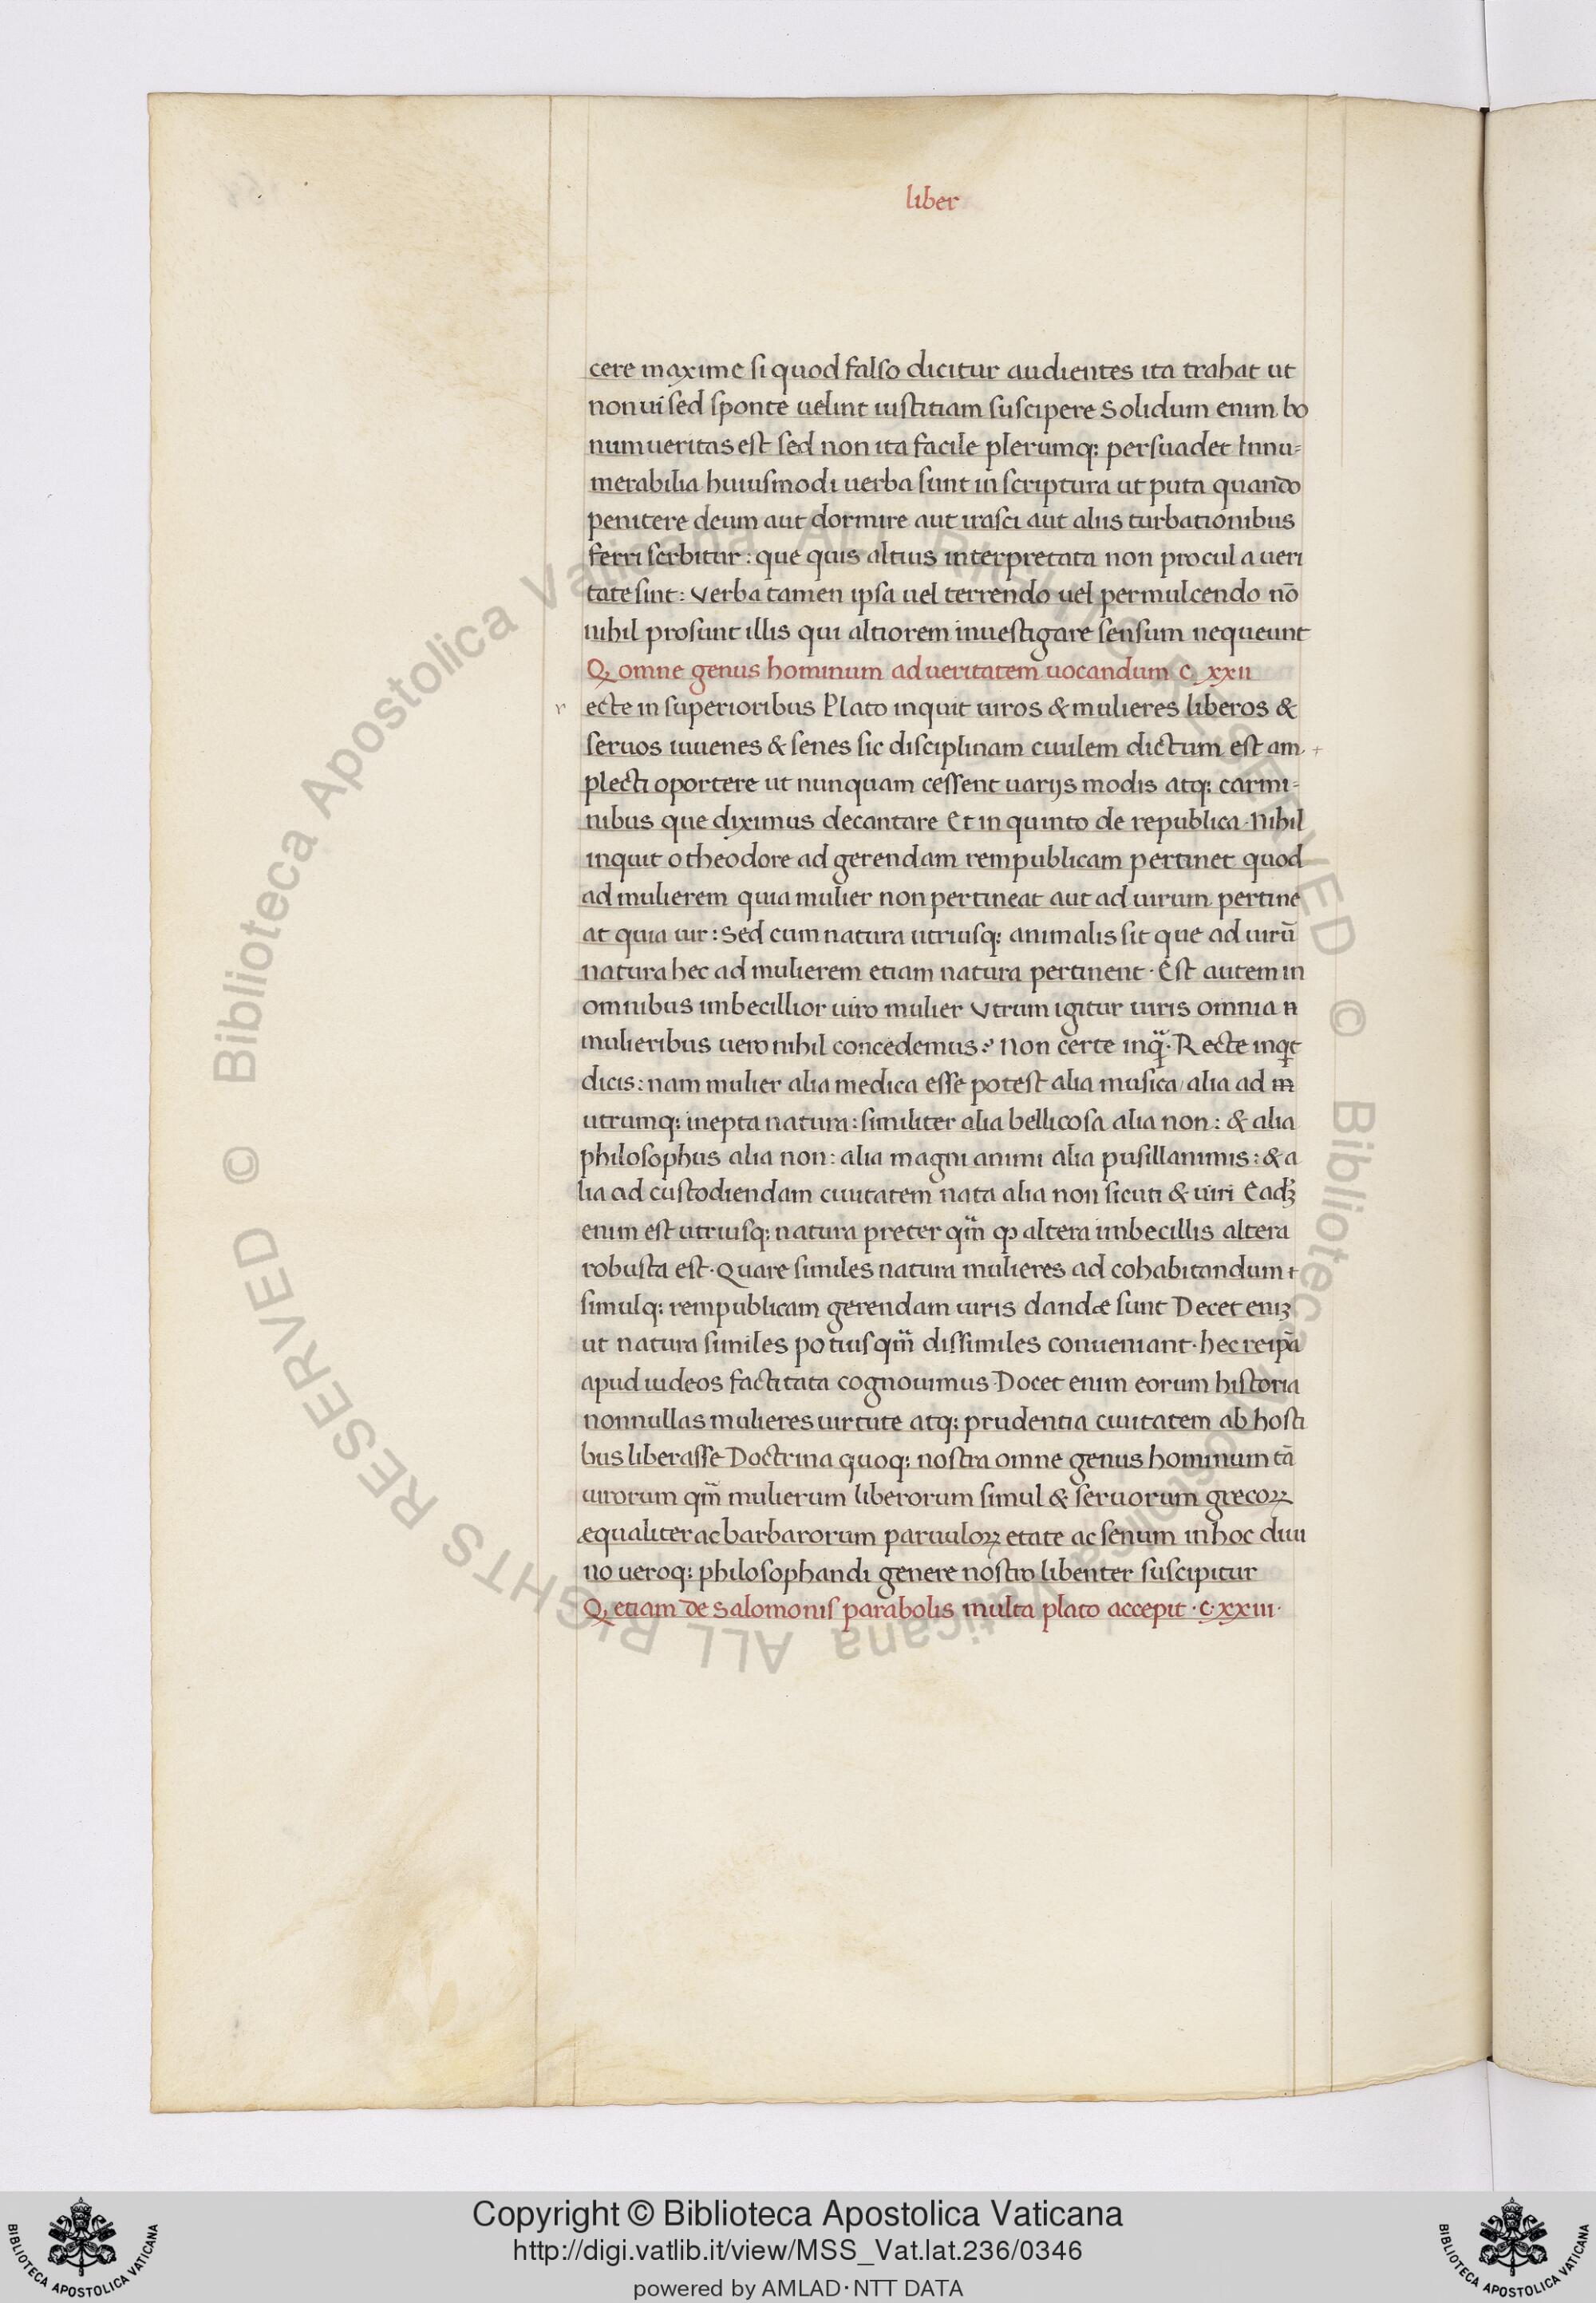 liber
cere maxime si quod falso dicitur audientes ita trahat ut
non ui sed sponte uelint iustitiam suscipere Solidum enim bo
num ueritas est sed non ita facile plerumq; persuadet Innu-
merabilia huiusmodi uerba sunt in scriptura ut puta quando
penitere deum aut dormire aut irasci aut aliis turbationibus
ferri scrbitur: que quis altius interpretata non procul a ueri
tate sint: Verba tamen ipsa uel terrendo uel permulcendo nō
nihil prosunt illis qui altiorem inuestigare sensum nequeunt
Q omne genus hominum ad ueritatem uocandum C. xxii
r ecte in superioribus Plato inquit uiros & mulieres liberos &
seruos iuuenes & senes sic disciplinam ciuilem dictum est am +
plecti oportere ut nunquam cessent uarijs modis atq; carmi-
nibus que diximus decantare Et in quinto de republica. Nihil
inquit o theodore ad gerendam rempublicam pertinet quod
ad mulierem quia mulier non pertineat aut ad uirum pertine
at quia uir: Sed cum natura utriusq; animalis sit que ad uirū
natura hec ad mulierem etiam natura pertinent. Est autem in
omnibus imbecillior uiro mulier Vtrum igitur uiris omnia
mulieribus uero nihil concedemus? Non certe inq̃. Recte inqt
dicis: nam mulier alia medica esse potest alia musica/ alia ad
utrumq; inepta natura: similiter alia bellicosa alia non: & alia
philosophus alia non: alia magni animi alia pusillanimis: & a
lia ad custodiendam ciuitatem nata alia non sicuti & uiri Eadꝫ
enim est utriusq; natura preter qm̃ ꝙ altera imbecillis altera
robusta est. Quare similes natura mulieres ad cohabitandum
simulq; rempublicam gerendam uiris dandæ sunt Decet eniꝫ
ut natura similes potius qm̃ dissimiles conueniant. hec reip̄a
apud iudeos factitata cognouimus. Docet enim eorum historia
nonnullas mulieres uirtute atq; prudentia ciuitatem ab hosti
bus liberasse Doctrina quoq; nostra omne genus hominum tā
uirorum qm̃ mulierum liberorum simul & seruorum grecoꝝ
æqualiter ac barbarorum paruuloꝝ etate ac senum in hoc diui
no ueroq; philosophandi genere nostro libenter suscipitur
Q etiam de Salomonis parabolis multa plato accepit. C. xxiii.
© Biblioteca Apostolica Vaticana ALL RIGHTS RESERVED © Biblioteca Apostolica Vaticana ALL RIGHTS RESERVED
Copyright © Biblioteca Apostolica Vaticana
http://digi.vatlib.it/view/MSS_Vat.lat.236/0346
powered by AMLAD·NTT DATA
BIBLIOTECA APOSTOLICA VATICANA
BIBLIOTECA APOSTOLICA VATICANA